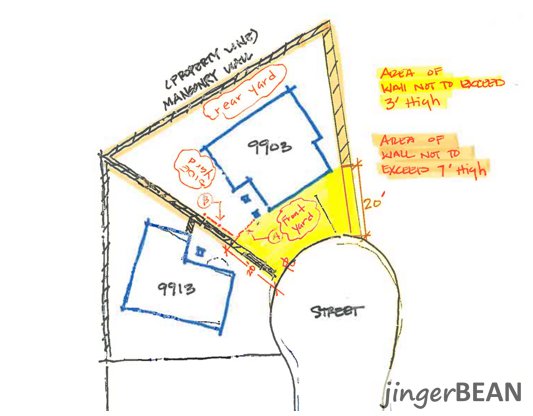 (PROPERTY LINE)
MASONRY WALL
rear yard
AREA OF
WALL NOT TO EXCEED
3' High
9903
AREA OF
WALL NOT TO
EXCEED 7' High
Side
Yard
B
20'
A
Front
Yard
20'
9913
STREET
jingerBEAN